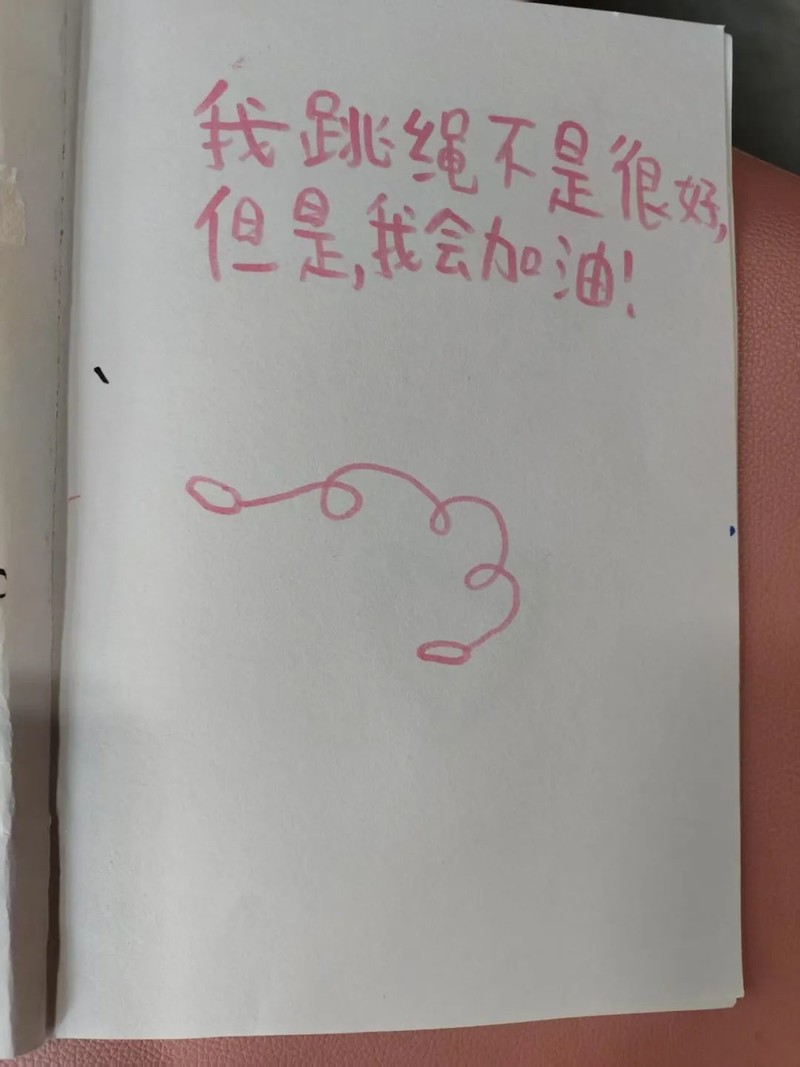 我跳绳不是很好,
但是,我会加油!